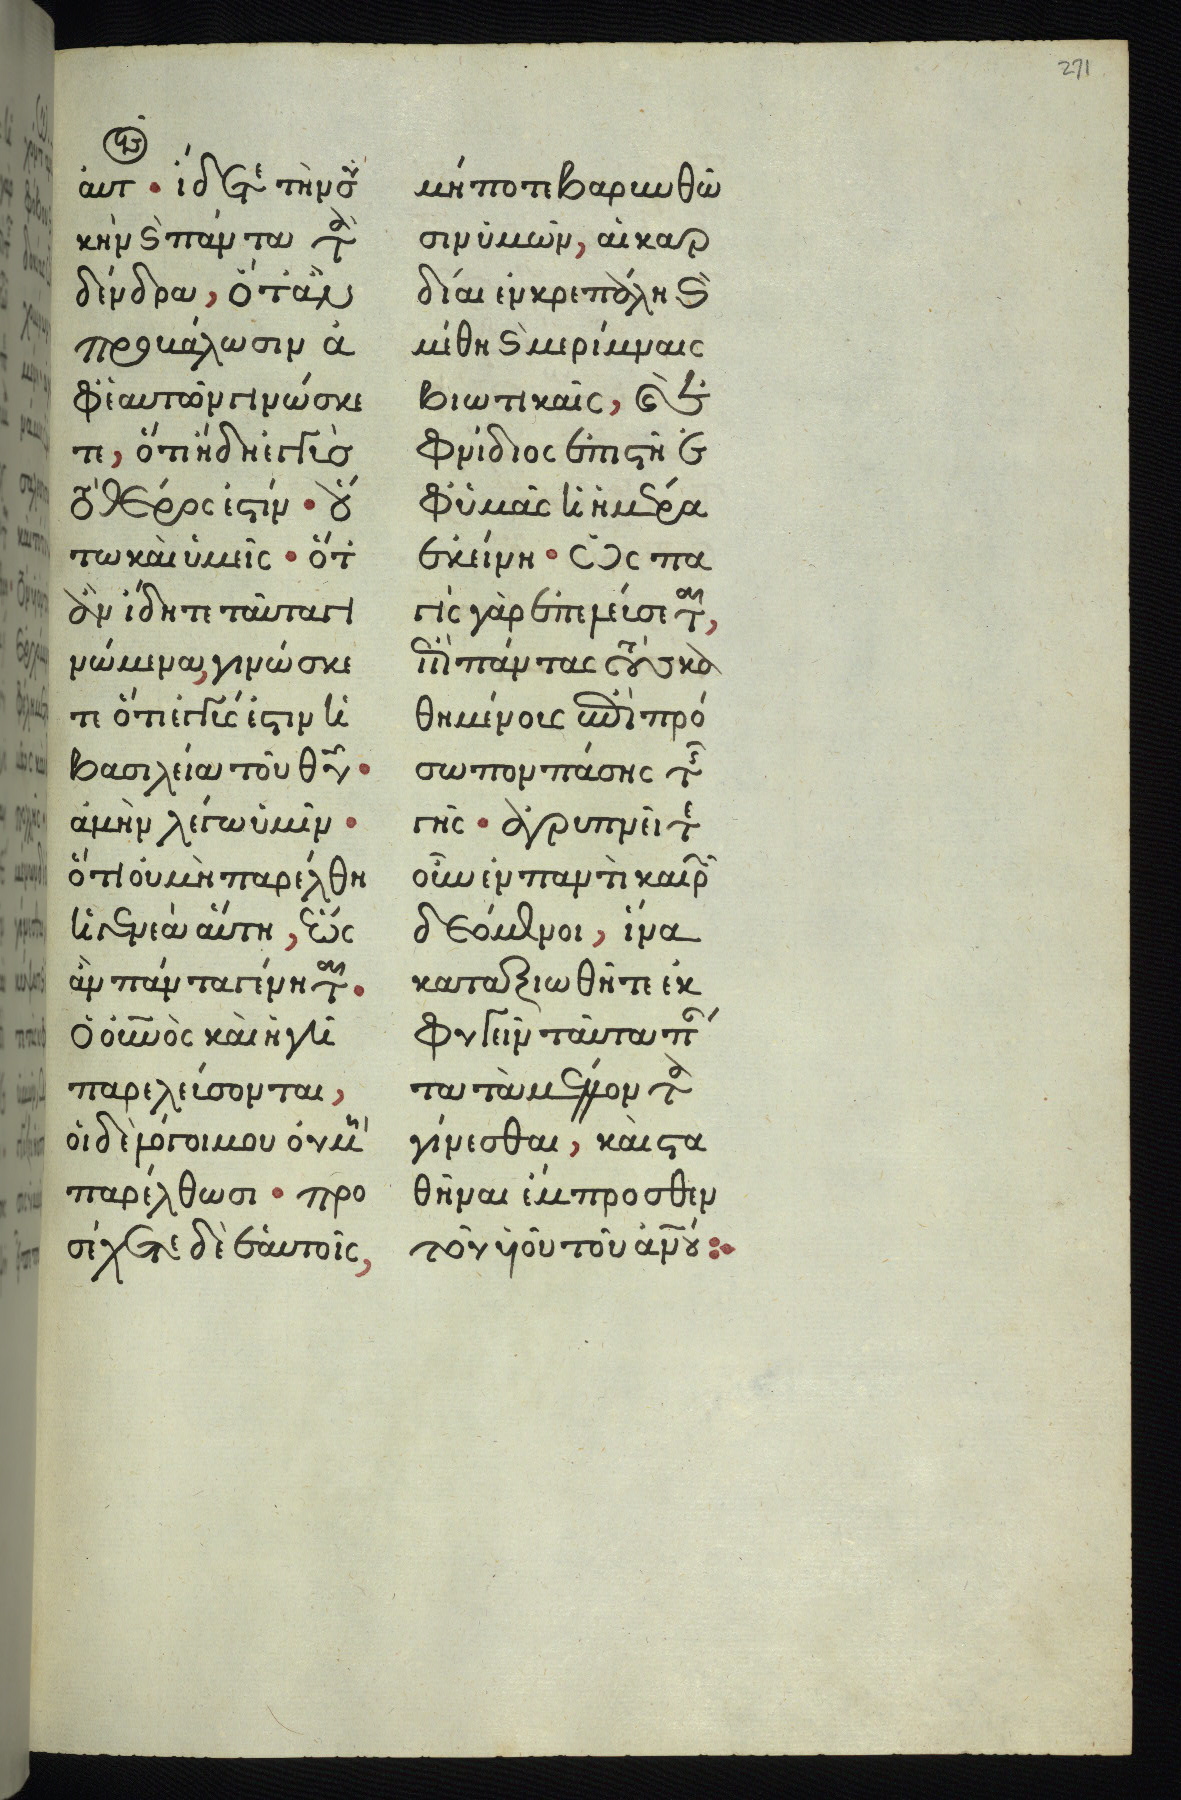 271
ἀυτ · ἴδετε τὴν συ
κὴν ϗ πάντα τὰ
δένδρα, ὅταν
προβάλωσιν ἀ
φ' ἑαυτῶν γινώσκε
τε, ὅτι ἤδη ἐγγὺς
τὸ θέρος ἐστίν · οὕ
τω καὶ ὑμεῖς · ὅτ
ὰν ἴδητε ταῦτα γι
νώμενα, γινώσκε
τε ὅτι ἐγγύς ἐστιν ἡ
βασιλεία τοῦ θυ ·
ἀμὴν λέγω ὑμῖν ·
ὅτι οὐ μὴ παρέλθη
ἡ γενεὰ ἅυτη, ἕως
ἂν πάντα γένηται ·
ὁ οὐνὸς καὶ ἡ γῆ
παρελεύσονται,
οἱ δὲ λόγοι μου ὀυ μὴ
παρέλθωσι · προ
σέχετε δὲ ἑαυτοῖς,
μήποτε βαρυνθῶ
σιν ὑμῶν, αἱ καρ
δίαι ἐν κρεπάλη ϗ
μέθη ϗ μερίμναις
βιωτικαῖς, ϗ αἰ
φνίδιος ἐπιστῆ ἐ
φ' ὑμᾶς ἡ ἡμέρα
ἐκείνη · ὡς πα
γὶς γὰρ ἐπελεύσεται,
ἐπὶ πάντας τοὺς κα
θημένους ἐπὶ πρό
σωπον πάσης τῆς
γῆς · ἀγρυπνεῖτε
οὖν ἐν παντὶ καιρῶ
δεόμενοι, ἵνα
καταξιωθῆτε ἐκ
φυγεῖν ταῦτα πάν
τα τὰ μέλλοντα
γίνεσθαι, καὶ στα
θῆναι ἔμπροσθεν
τοῦ υἱοῦ τοῦ ἀνου :·